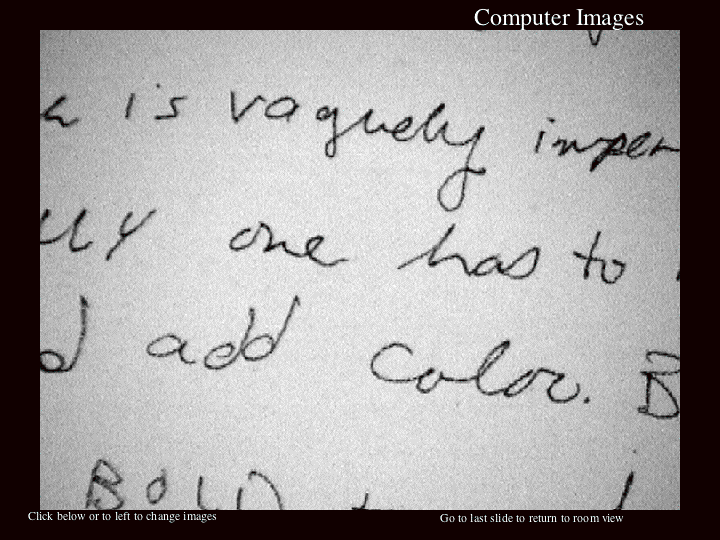 Computer Images
is vaguely
one has to
add color. B
BOLD
Click below or to left to change images
Go to last slide to return to room view